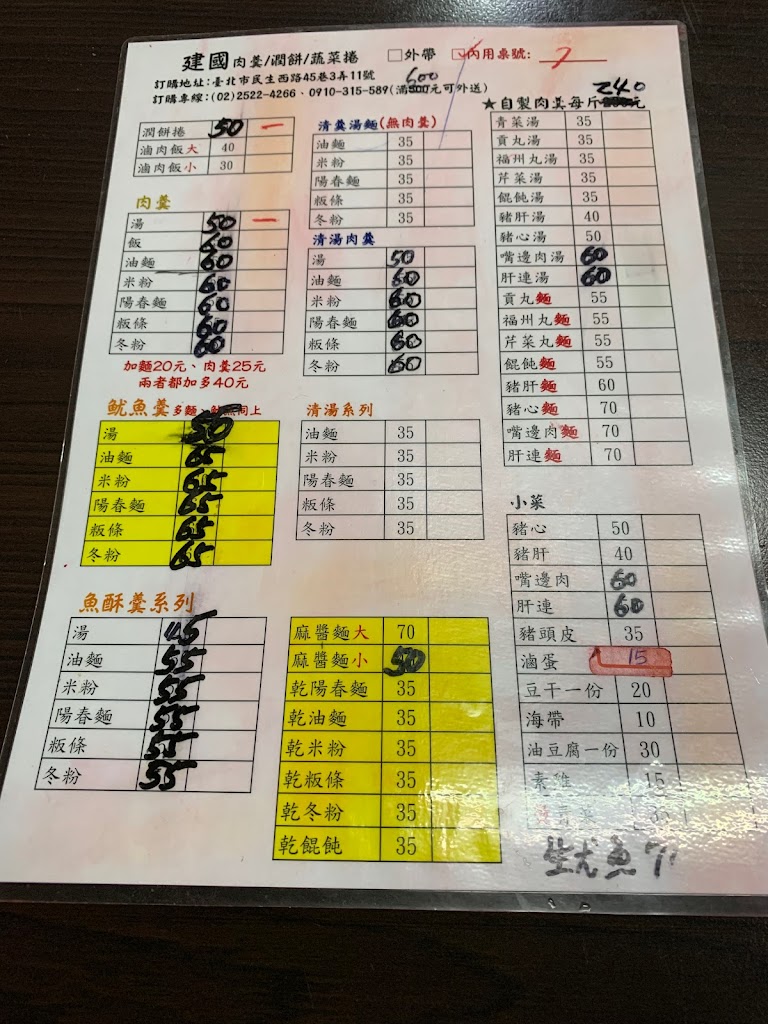 建國肉羹/潤餅/蔬菜捲 □外帶 ☑內用桌號: 7
訂購地址:臺北市民生西路45巷3弄11號
訂購專線:(02)2522-4266、0910-315-589(滿600元可外送)
★自製肉羹每斤240元
潤餅捲 50 一
滷肉飯大 40
滷肉飯小 30
肉羹
湯 50 一
飯 60
油麵 60
米粉 60
陽春麵 60
粄條 60
冬粉 60
加麵20元、肉羹25元
兩者都加多40元
魷魚羹 多麵、魷魚同上
湯 50
油麵 65
米粉 65
陽春麵 65
粄條 65
冬粉 65
魚酥羹系列
湯 45
油麵 55
米粉 55
陽春麵 55
粄條 55
冬粉 55
清羹湯麵(無肉羹)
油麵 35
米粉 35
陽春麵 35
粄條 35
冬粉 35
清湯肉羹
湯 50
油麵 60
米粉 60
陽春麵 60
粄條 60
冬粉 60
清湯系列
油麵 35
米粉 35
陽春麵 35
粄條 35
冬粉 35
麻醬麵大 70
麻醬麵小 50
乾陽春麵 35
乾油麵 35
乾米粉 35
乾粄條 35
乾冬粉 35
乾餛飩 35
青菜湯 35
貢丸湯 35
福州丸湯 35
芹菜湯 35
餛飩湯 35
豬肝湯 40
豬心湯 50
嘴邊肉湯 60
肝連湯 60
貢丸麵 55
福州丸麵 55
芹菜丸麵 55
餛飩麵 55
豬肝麵 60
豬心麵 70
嘴邊肉麵 70
肝連麵 70
小菜
豬心 50
豬肝 40
嘴邊肉 60
肝連 60
豬頭皮 35
滷蛋 15
豆干一份 20
海帶 10
油豆腐一份 30
素雞 15
青菜 35
魷魚